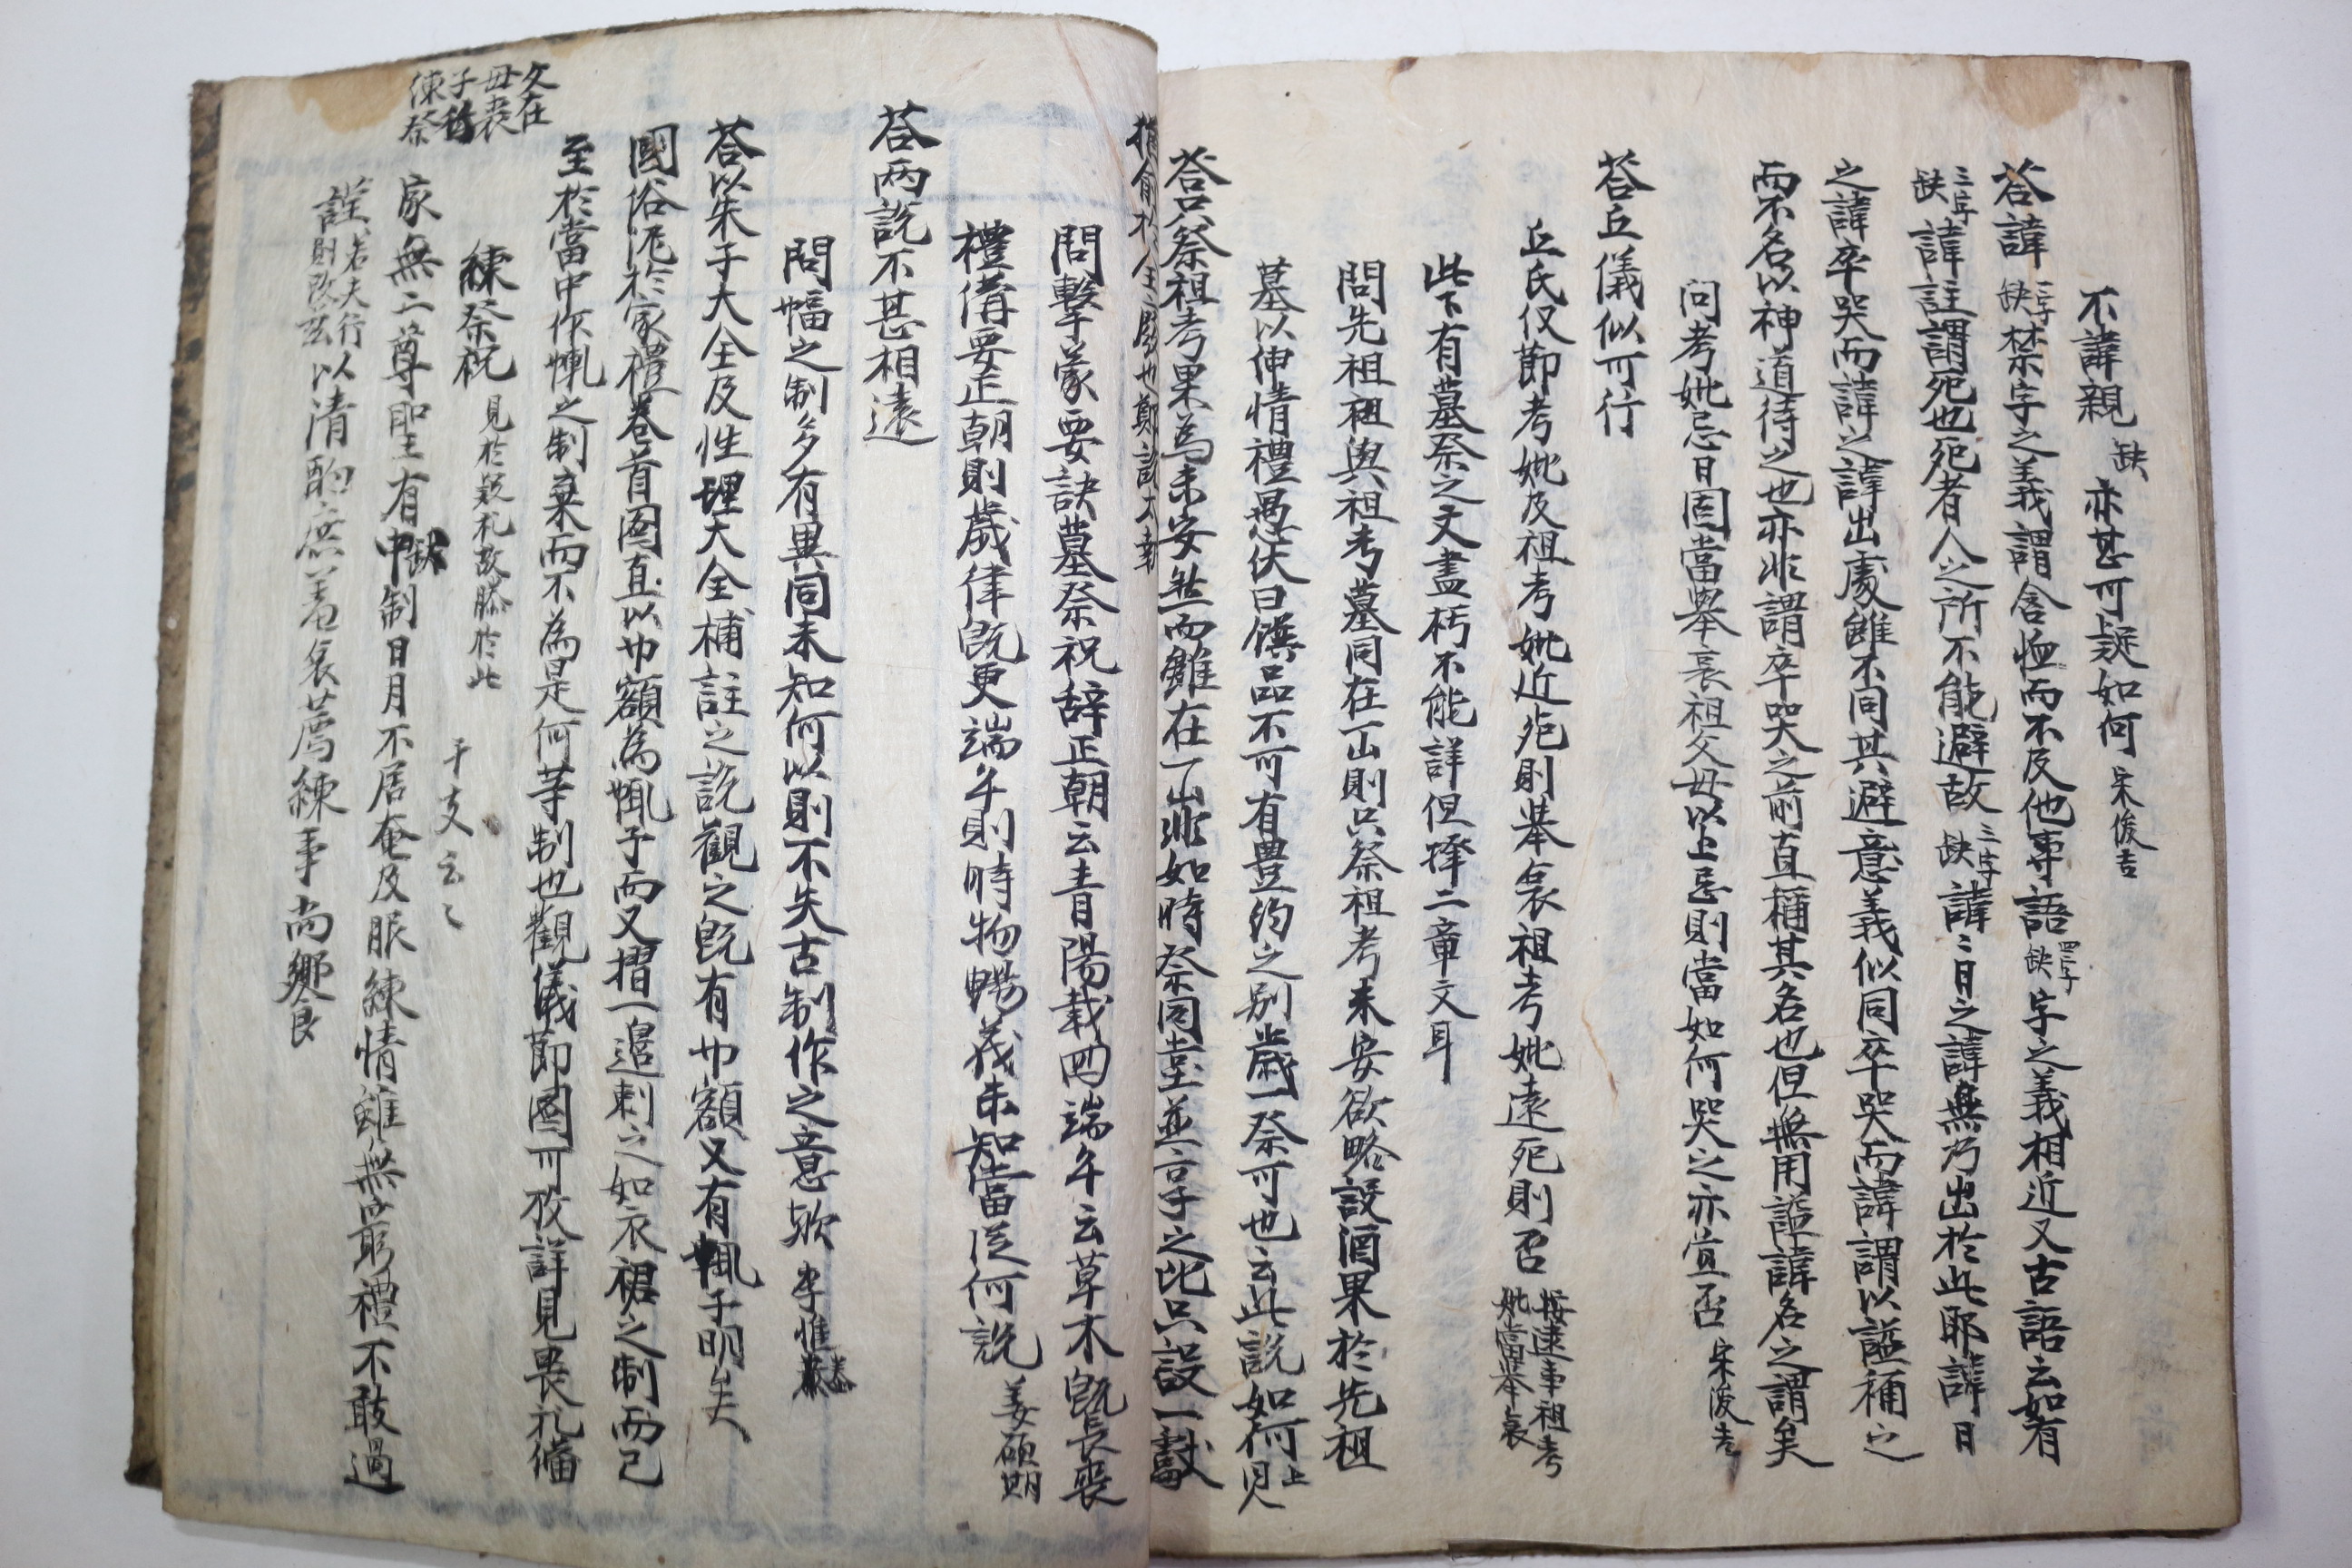 不諱親 缺 亦甚可疑如何 宋俊吉
答諱 二字缺 禁字之義謂含恤而不及他事語 四字缺 字之義相近又古語云如有
三字缺 諱註謂死也死者人之所不能避故 三字缺 諱諱日之諱無乃出於此耶諱日
之諱卒哭而諱之諱出處雖不同其避意義似同卒哭而諱謂以諡稱之
而不名以神道待之也亦非謂卒哭之前直稱其名也但無用諡諱名之謂矣
问考妣忌日固當舉哀祖父母以上忌則當如何哭之亦宜否 宋浚吉
答丘儀似可行
丘氏仪節考妣及祖考妣近死則举哀祖考妣遠死則否 按逮事祖考妣當举哀
此下有墓祭之文盡朽不能詳但擇二章文耳
問先祖祖與祖考墓同在一山則只祭祖考未安欲略設酒果於先祖
墓以伸情禮愚伏曰饌品不可有豊约之别歲一祭可也云此說如何 見上
答只祭祖考果為未安然而雖在一山非如時祭同堂並享之比只設一獻
問擊蒙要訣墓祭祝辞正朝云青陽载回端午云草木旣長喪
禮備要正朝則歲律旣更端午則時物暢茂未知當從何説 姜碩期
答两説不甚相遠
問幅之制多有異同未知何以則不失古制作之意欤 李惟
答以朱子大全及性理大全補註之説觀之旣有巾額又有㡇子明矣
國俗泥於家禮卷首图直以巾額為㡇子而又摺一邉刺之如衣裙之制而已
至於當中作㡇之制棄而不為是何等制也觀儀節圖可攷詳見喪礼備
父在母喪子行練祭
練祭祝 見於疑礼故謄於此 干支云云
家無二尊聖有中制日月不居奄及服練情雖無窮禮不敢過
謹 若夫行則改玆 以清酌庶羞哀薦練事尚饗